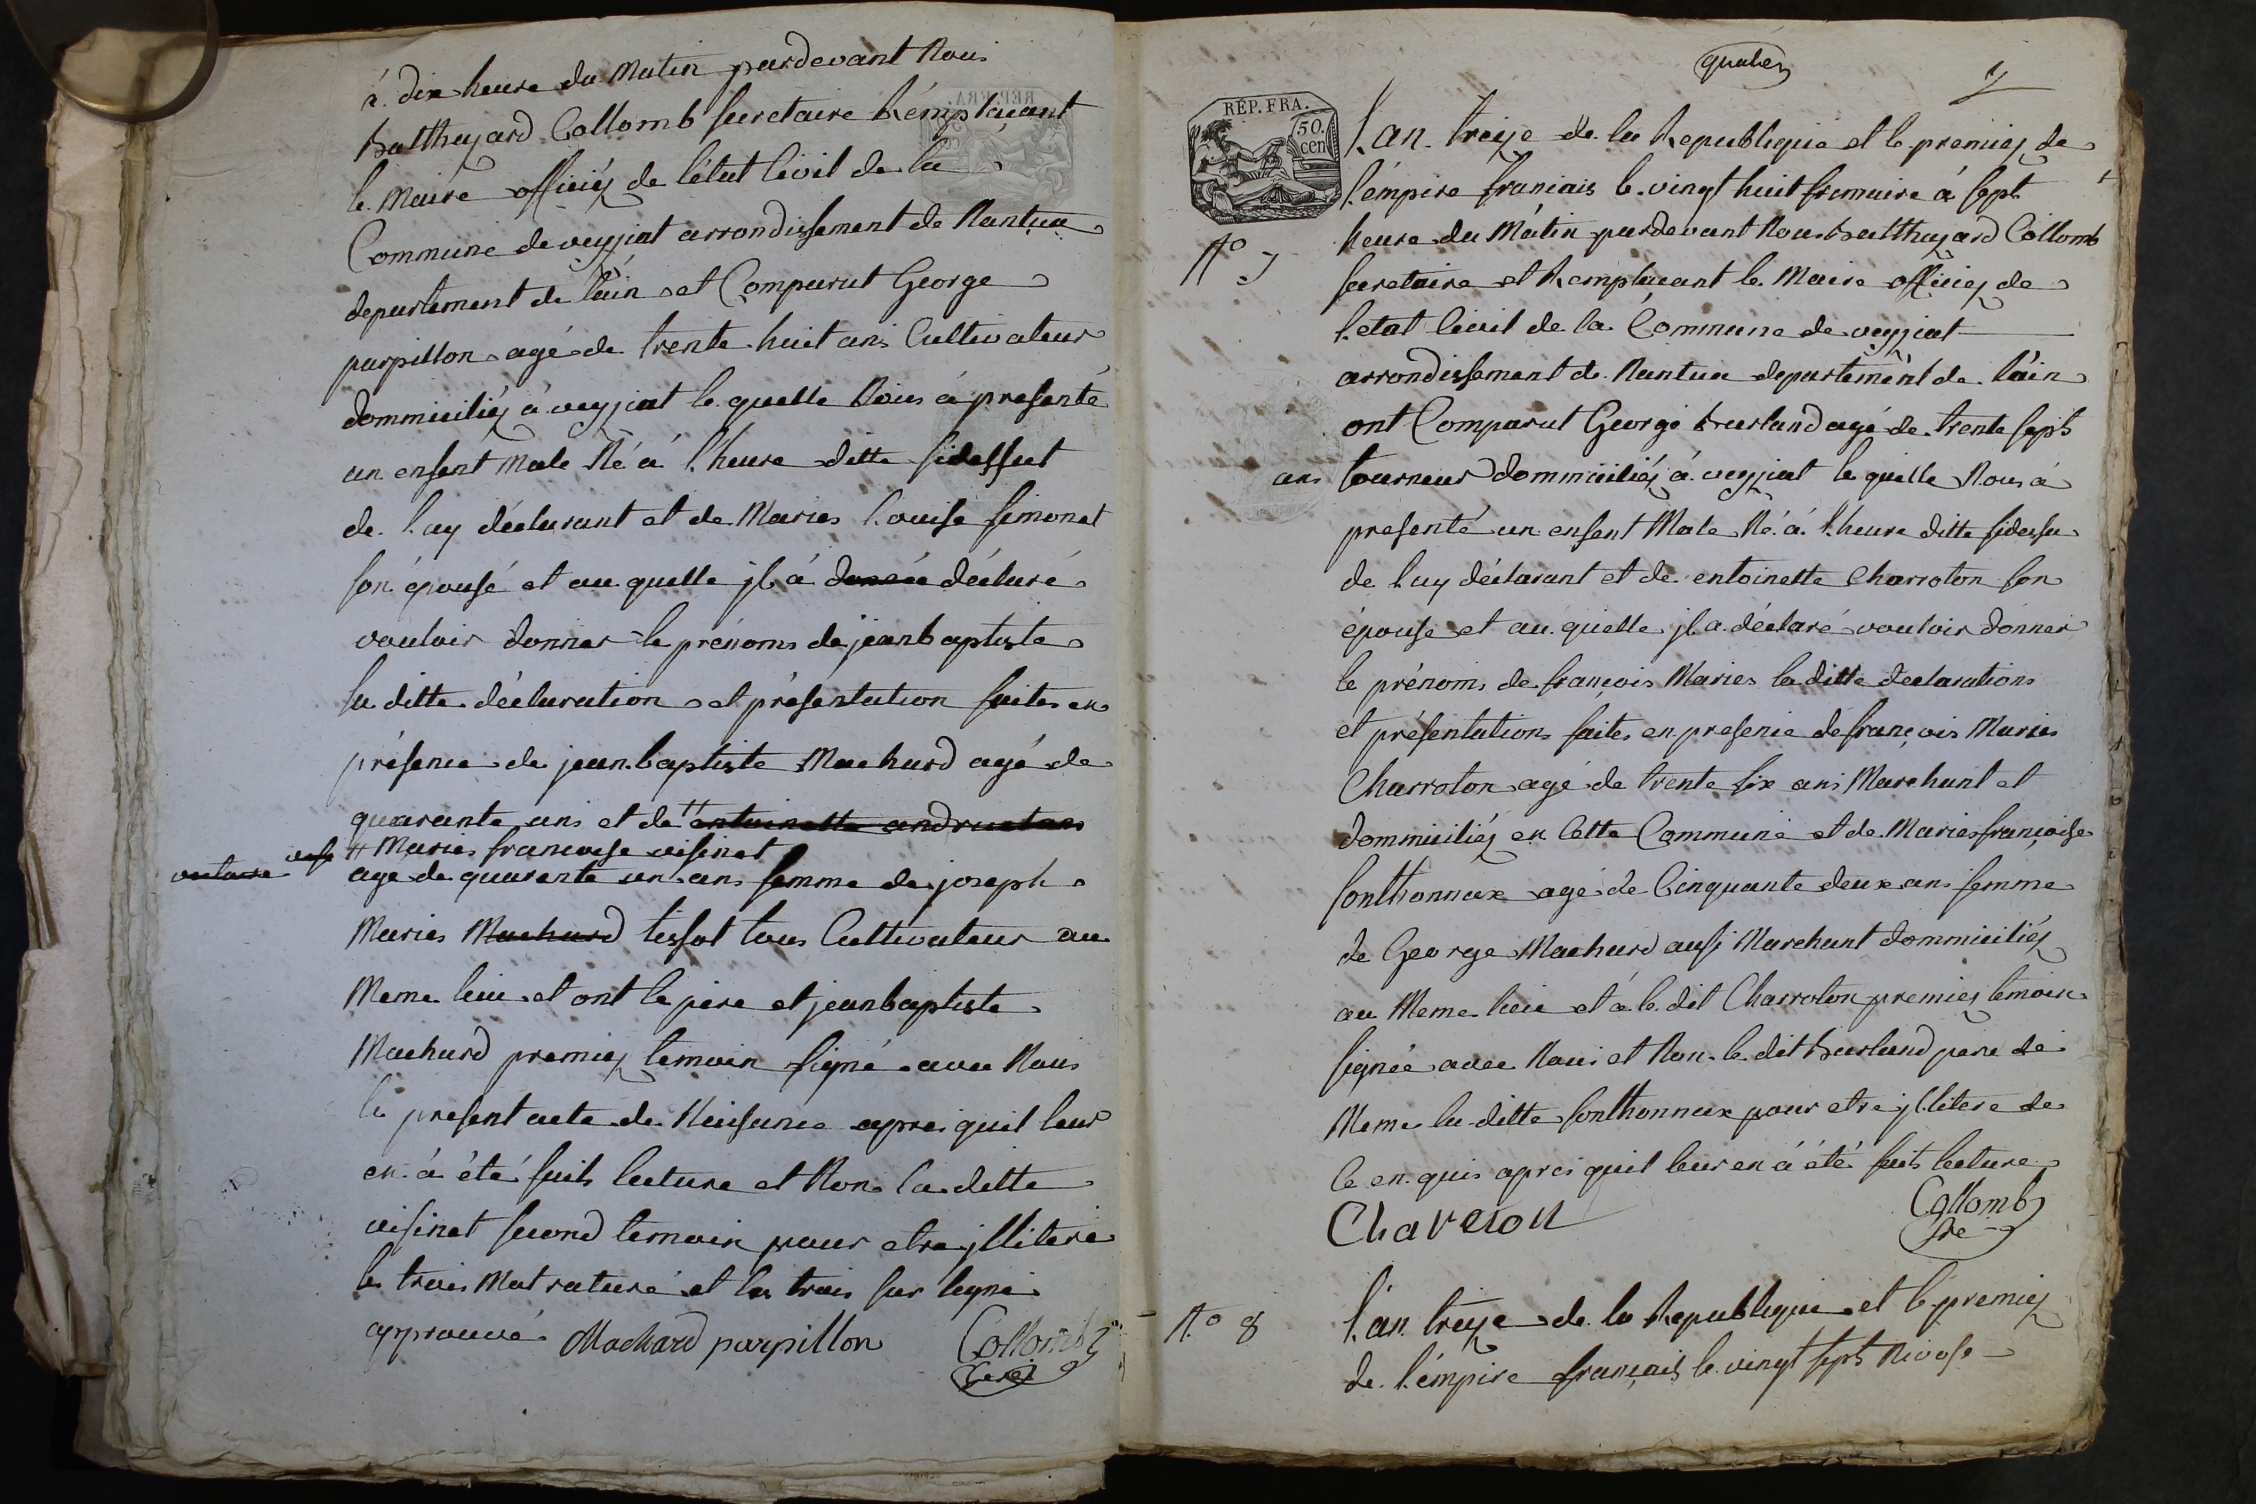 à dix heure du Matin pardevant Nous
Balthazard Collomb secretaire Rémplaçant
le Maire officiéz de létat Civil de la
Commune de veyziat arrondissement de Nantua
departement de láin et Comparut George
parpillon agé de trente huit ans Cultivateur
dommiciliéz à veyziat le quelle Nous à presenté
un enfent Male Né à l'heure ditte sidessut
de luy déclarant et de Maries Louise simonet
son épousé et au quelle jl à donée déclaré
vouloir donner le prénoms de jeanbaptiste
la ditte déclaration et présentation faites en
présence de jean.baptiste Machard agé de
quarante ans et de ++ entoinette
++ Maries francoise visinet
age de quarente un ans femme de joseph
Maries Machard tissot tous Cultivateur au
Meme lieu et ont le pere et jeanbaptiste
Machard premiez temoin signé avec Nous
le present acte de Naisance apres quil leur
en à été fait lecture et Non la ditte
visinet second temoin pour etre jllitere
les trois Mot raturé et les trois sur ligne
approuvé Machard parpillon Collomb
quatre
7
RÉP. FRA.
50. cen
N° 7
L'an treize de la Republique et le premiez de
l'émpire francais le vingt huit frimaire à sept
heure du Mátin pardevant Nous Balthazard Collomb
secretaire et Remplacant le Maire officiez de
l'etat Civil de la Commune de veyziat
arrondissement de Nantua departemént de láin
ont Comparut George Burland agé de trente sept
ans tourneur dommiciliéz à veyziat le quelle Nous à
presenté un enfent Male Né à l'heure ditte sidessu
de luy déclarant et de entoinette Charroton son
épouse et au quelle jl a déclaré vouloir donner
le prénoms de françois Maries la ditte declarations
et présentations faites en presence de françois Maries
Charroton agé de trente six ans Marchant et
dommiciliéz en Cette Commune et de Maries françoise
sonthonnax agé de Cinquante deux ans femme
de George Machard aussi Marchant dommiciliéz
au Meme lieu et à le dit Charroton premiez temoin
signée avec Nous et Non le dit Burland pere de
Meme la ditte sonthonnax pour etre jllitere de
Ce en quis apres quil leur en á été fait lecture
Chareton Collomb
Sre
N.° 8
L'an treize de la Republique et le premiez
de l'émpire français le vingt sept Nivose